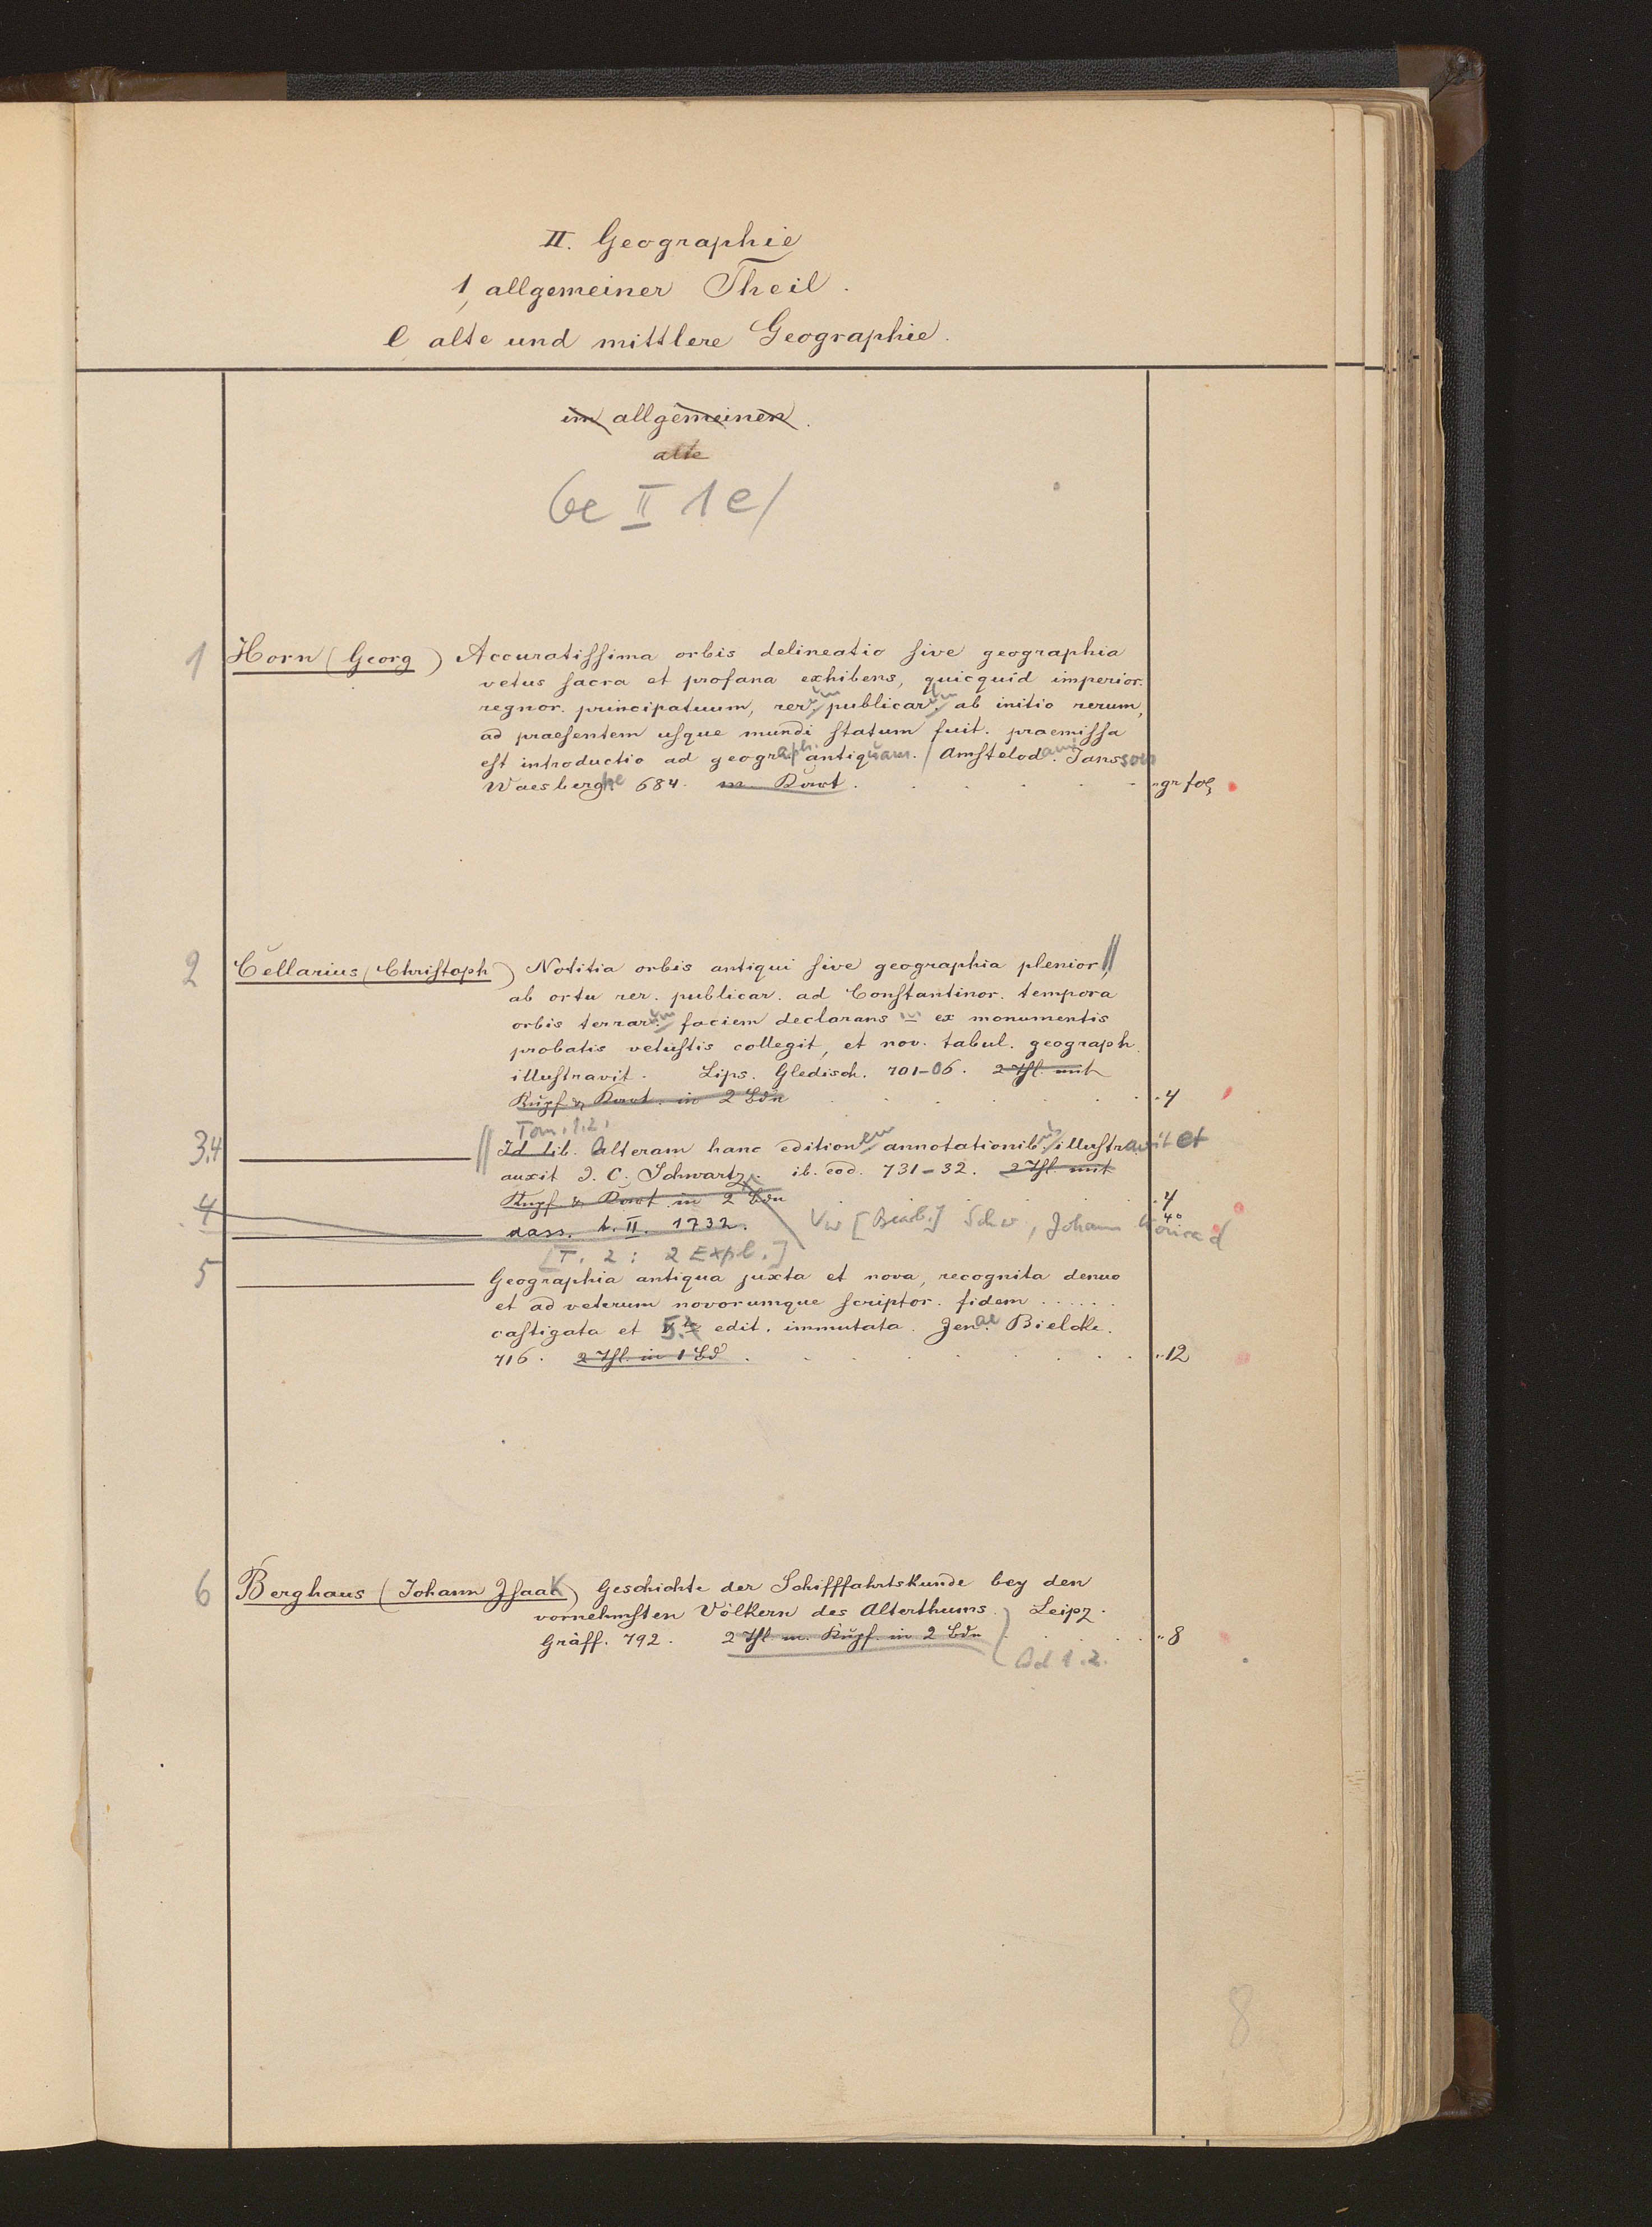 II. Geographie
1, allgemeiner Theil.
e alte und mittlere Geographie.
im allgemeinen.
alte
Ge II 1 e/
1 Horn (Georg) Accuratiſſima orbis delineatio ſive geographia
vetus ſacra et profana exhibens, quicquid imperior.
regnor. principatuum, rerum publicarum ab initio rerum,
ad praeſentem uſque mundi ſtatum fuit. praemiſſa
eſt introductio ad geograph. antiquam. / Amſtelodami. Jansson
Waesberghe 684. m. Kart. gr fol
2 Cellarius (Chriſtoph) Notitia orbis antiqui ſive geographia plenior, //
ab ortu rer. publicar. ad Conſtantinor. tempora
orbis terrarum faciem declarans ... ex monumentis
probatis vetuſtis collegit, et nov. tabul. geograph.
illuſtravit. Lips. Gledisch. 701-06. 2 Thl. mit
Kupf & Kart. in 2 Bdn 4
Tom. 1.2.
3.4 // Id lib. Alteram hanc editionem annotationibus illuſtravit et
auxit I. C. Schwartz. ib. eod. 731-32. 2 Thl. mit
Kupf & Kart in 2 Bdn 4
4 dass. t. II. 1732. Vw [Bearb.] Schw, Johann Conrad 4°
[T. 2: 2 Expl.]
5 Geographia antiqua juxta et nova, recognita denuo
et ad veterum novorumque ſcriptor. fidem ......
caſtigata et 5. edit. immutata. Jenae Bielcke.
716. 2 Thl. in 1 Bd 12
6 Berghaus (Johann Iſaak) Geschichte der Schifffahrtskunde bey den
vornehmſten Völkern des Alterthums. Leipz.
Gräff. 792. 2 Thl. m. Kupf. in 2 Bdn 8
Bd 1.2.
8